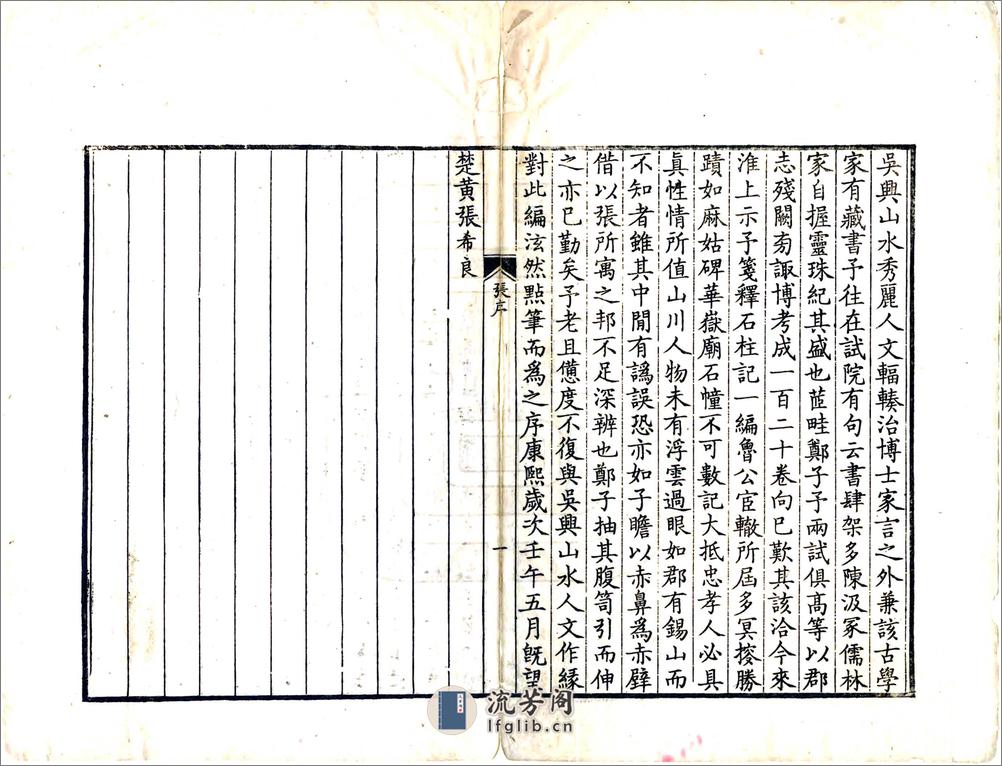 吳興山水秀麗人文輻輳治博士家言之外兼該古學
家有藏書予往在試院有句云書肆架多陳汲冢儒林
家自握靈珠紀其盛也芷畦鄭子予兩試俱高等以郡
志殘闕㫄諏博考成一百二十卷向已歎其該洽今來
淮上示予箋釋石柱記一編魯公宦轍所屆多冥搜勝
蹟如麻姑碑華嶽廟石幢不可數記大抵忠孝人必具
眞性情所值山川人物未有浮雲過眼如郡有錫山而
不知者雖其中閒有譌誤恐亦如子瞻以赤鼻爲赤壁
借以張所寓之邦不足深辨也鄭子抽其腹笥引而伸
之亦已勤矣予老且憊度不復與吳興山水人文作緣
對此編泫然點筆而爲之序康熙歲次壬午五月旣望
楚黃張希良
張序
一
流芳阁
lfglib.cn